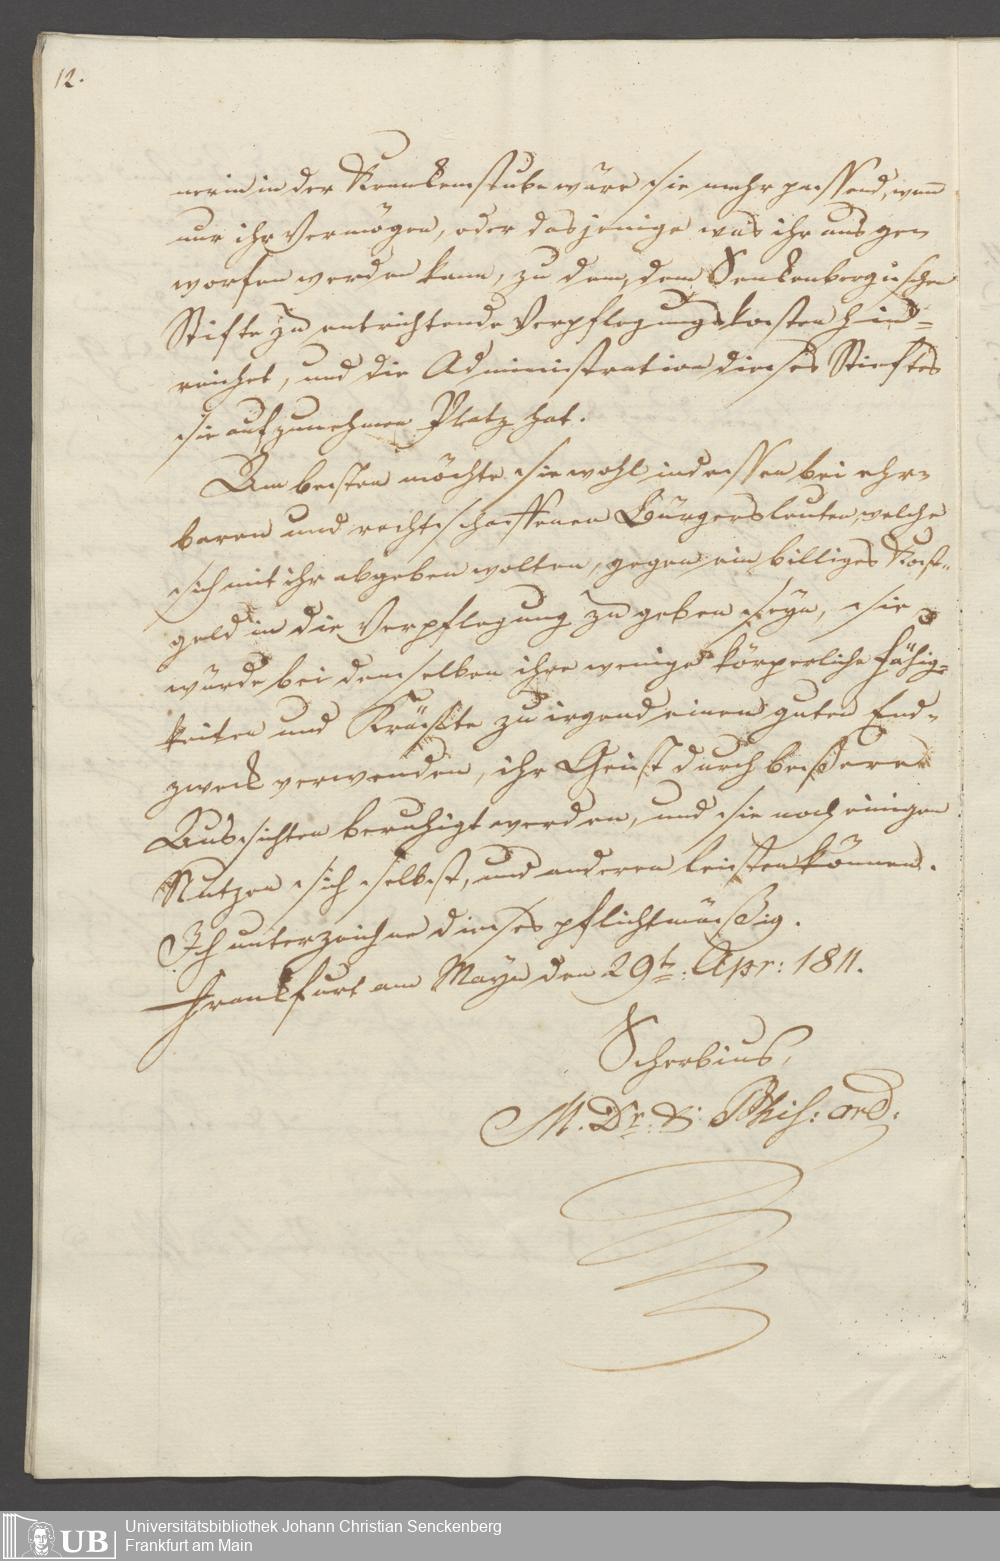 12.
nerin in der Krankenstube wäre sie mehr passend, wenn
nur ihr Vermögen, oder dasjenige was ihr ausge-
worfen werden kann, zu dem, dem Senkenbergischen
Stifte zu entrichtende Verpflegungskosten hin=
reichet, und die Administration dieses Stieftes
sie aufzunehmen Platz hat.
Am besten möchte sie wohl indessen bei ehr-
baren und rechtschaffenen Bürgersleuten, welche
sich mit ihr abgeben wolten, gegen ein billiges Kost-
geld in die Verpflegung zu geben seyn, sie
würde bei denselben ihre wenige körperliche Fähig=
keiten und Kräfte zu irgend einem guten End-
zweck verwenden, ihr Geist durch bessere
Aussichten beruhigt werden, und sie noch einigen
Nutzen sich selbst, und anderen leisten können.
Ich unterzeichne dieses pflichtmäßig.
Frankfurt am Mayn den 29t: Apr: 1811.
Scherbius,
M. Dr. & Phis: ord:
UB
Universitätsbibliothek Johann Christian Senckenberg
Frankfurt am Main